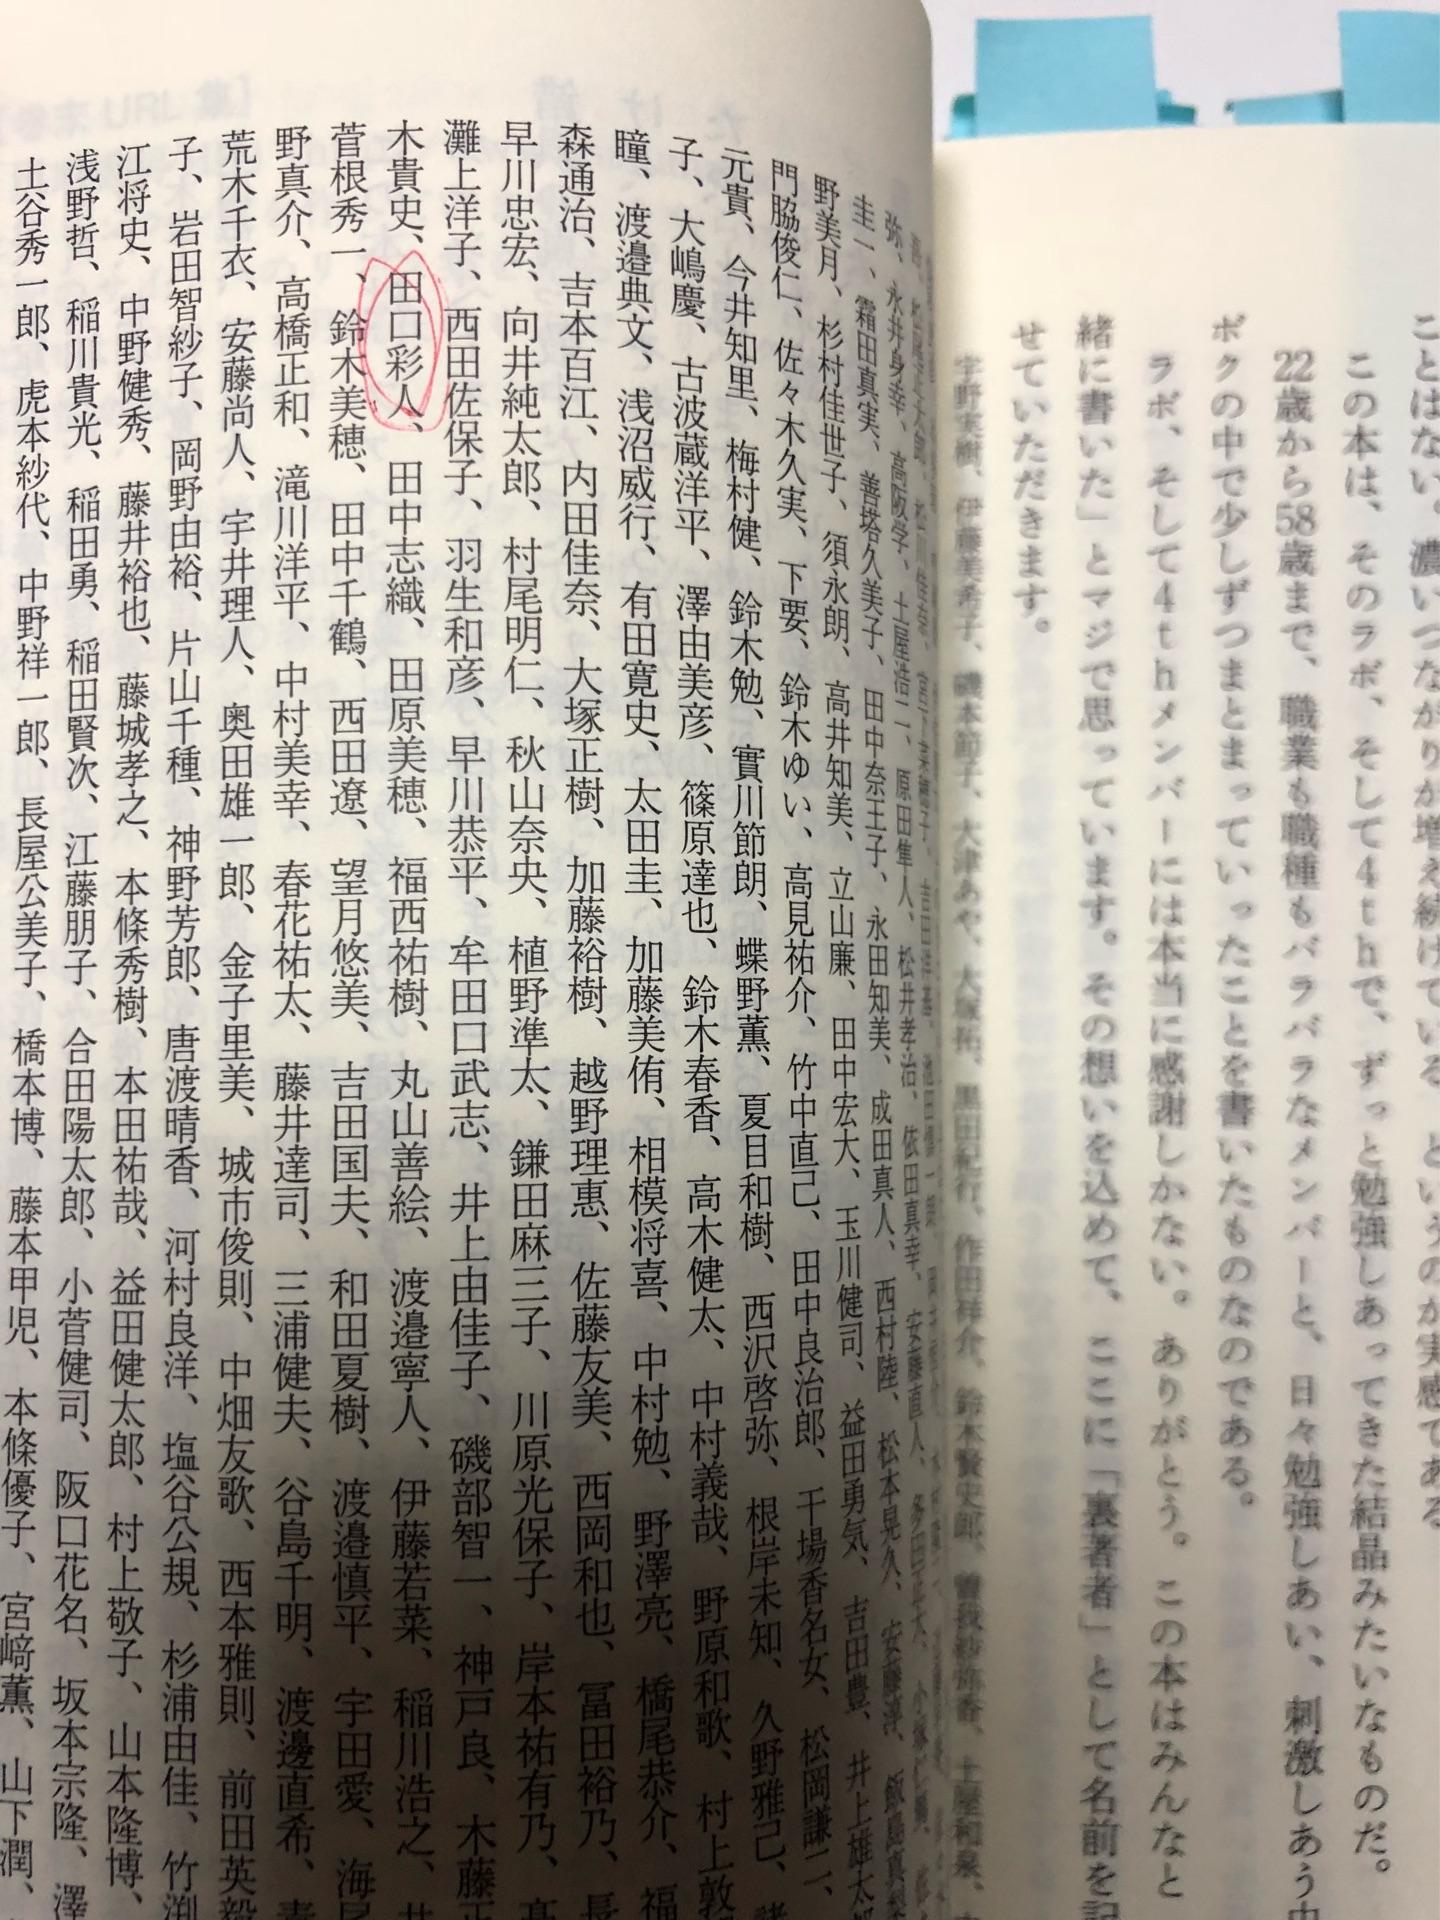 ことはない。濃いつながりが増え続けている、というのが実感である
この本は、そのラボ、そして4thで、ずっと勉強しあってきた結晶みたいなものだ。
22歳から58歳まで、職業も職種もバラバラなメンバーと、日々勉強しあい、刺激しあう中
ボクの中で少しずつまとまっていったことを書いたものなのである。
ラボ、そして4thメンバーには本当に感謝しかない。ありがとう。この本はみんなと
緒に書いた」とマジで思っています。その想いを込めて、ここに「裏著者」として名前を記
せていただきます。
宇野実樹、伊藤美希子、磯本節子、大津あや、大塚拓、黒田紀行、作田祥介、鈴木賢史郎、曽我紗弥香、土屋和泉、
弥、永井身幸、高阪学、土屋浩二、原田隼人、松井孝治、依田真幸、安藤直人、
圭一、霜田真実、善塔久美子、田中奈王子、永田知美、成田真人、西村陸、松本晃久、安藤淳、飯島真梨
野美月、杉村佳世子、須永朗、高井知美、立山廉、田中宏大、玉川健司、益田勇気、吉田豊、井上雄太
門脇俊仁、佐々木久実、下要、鈴木ゆい、高見祐介、竹中直己、田中良治郎、干場香名女、松岡謙二、
元貴、今井知里、梅村健、鈴木勉、實川節朗、蝶野薫、夏目和樹、西沢啓弥、根岸未知、久野雅己、
子、大嶋慶、古波蔵洋平、澤由美彦、篠原達也、鈴木春香、高木健太、中村義哉、野原和歌、村上敦
瞳、渡邉典文、浅沼威行、有田寛史、太田圭、加藤美侑、相模将喜、中村勉、野澤亮、橋尾恭介、福
森通治、吉本百江、内田佳奈、大塚正樹、加藤裕樹、越野理惠、佐藤友美、西岡和也、冨田裕乃、長
早川忠宏、向井純太郎、村尾明仁、秋山奈央、植野準太、鎌田麻三子、川原光保子、岸本祐有乃、髙
灘上洋子、西田佐保子、羽生和彦、早川恭平、牟田口武志、井上由佳子、磯部智一、神戸良、木藤正
木貴史、田口彩人、田中志織、田原美穂、福西祐樹、丸山善絵、渡邉寧人、伊藤若菜、稲川浩之、井
菅根秀一、鈴木美穂、田中千鶴、西田遼、望月悠美、吉田国夫、和田夏樹、渡邉慎平、宇田愛、海尾
野真介、高橋正和、滝川洋平、中村美幸、春花祐太、藤井達司、三浦健夫、谷島千明、渡邊直希、青
荒木千衣、安藤尚人、宇井理人、奥田雄一郎、金子里美、城市俊則、中畑友歌、西本雅則、前田英毅
子、岩田智紗子、岡野由裕、片山千種、神野芳郎、唐渡晴香、河村良洋、塩谷公規、杉浦由佳、竹渕
江将史、中野健秀、藤井裕也、藤城孝之、本條秀樹、本田祐哉、益田健太郎、村上敬子、山本隆博、
浅野哲、稲川貴光、稲田勇、稲田賢次、江藤朋子、合田陽太郎、小菅健司、阪口花名、坂本宗隆、澤
土谷秀一郎、虎本紗代、中野祥一郎、長屋公美子、橋本博、藤本甲児、本條優子、宮﨑薫、山下潤、